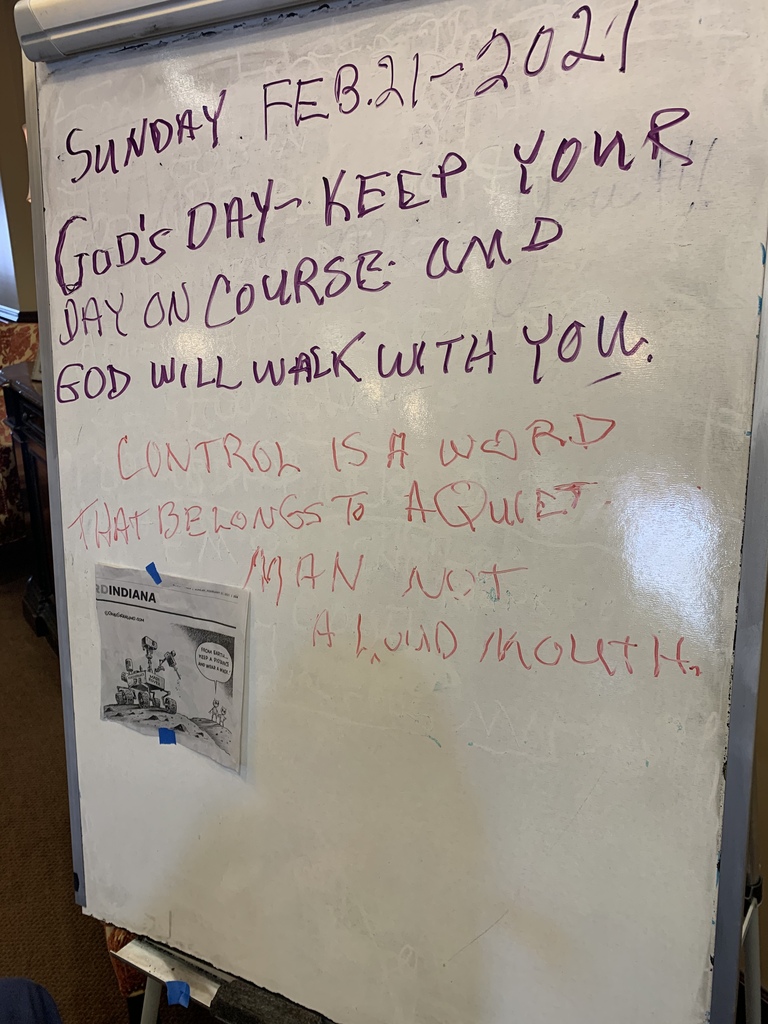 SUNDAY. FEB.21-2021
GOD'S DAY- KEEP YOUR
DAY ON COURSE. AND
GOD WILL WALK WITH YOU.
CONTROL IS A WORD
THAT BELONGS TO A QUIET
MAN NOT
A LOUD MOUTH.
RDINDIANA
FROM EARTH...
KEEP A DISTANCE
AND WEAR A MASK